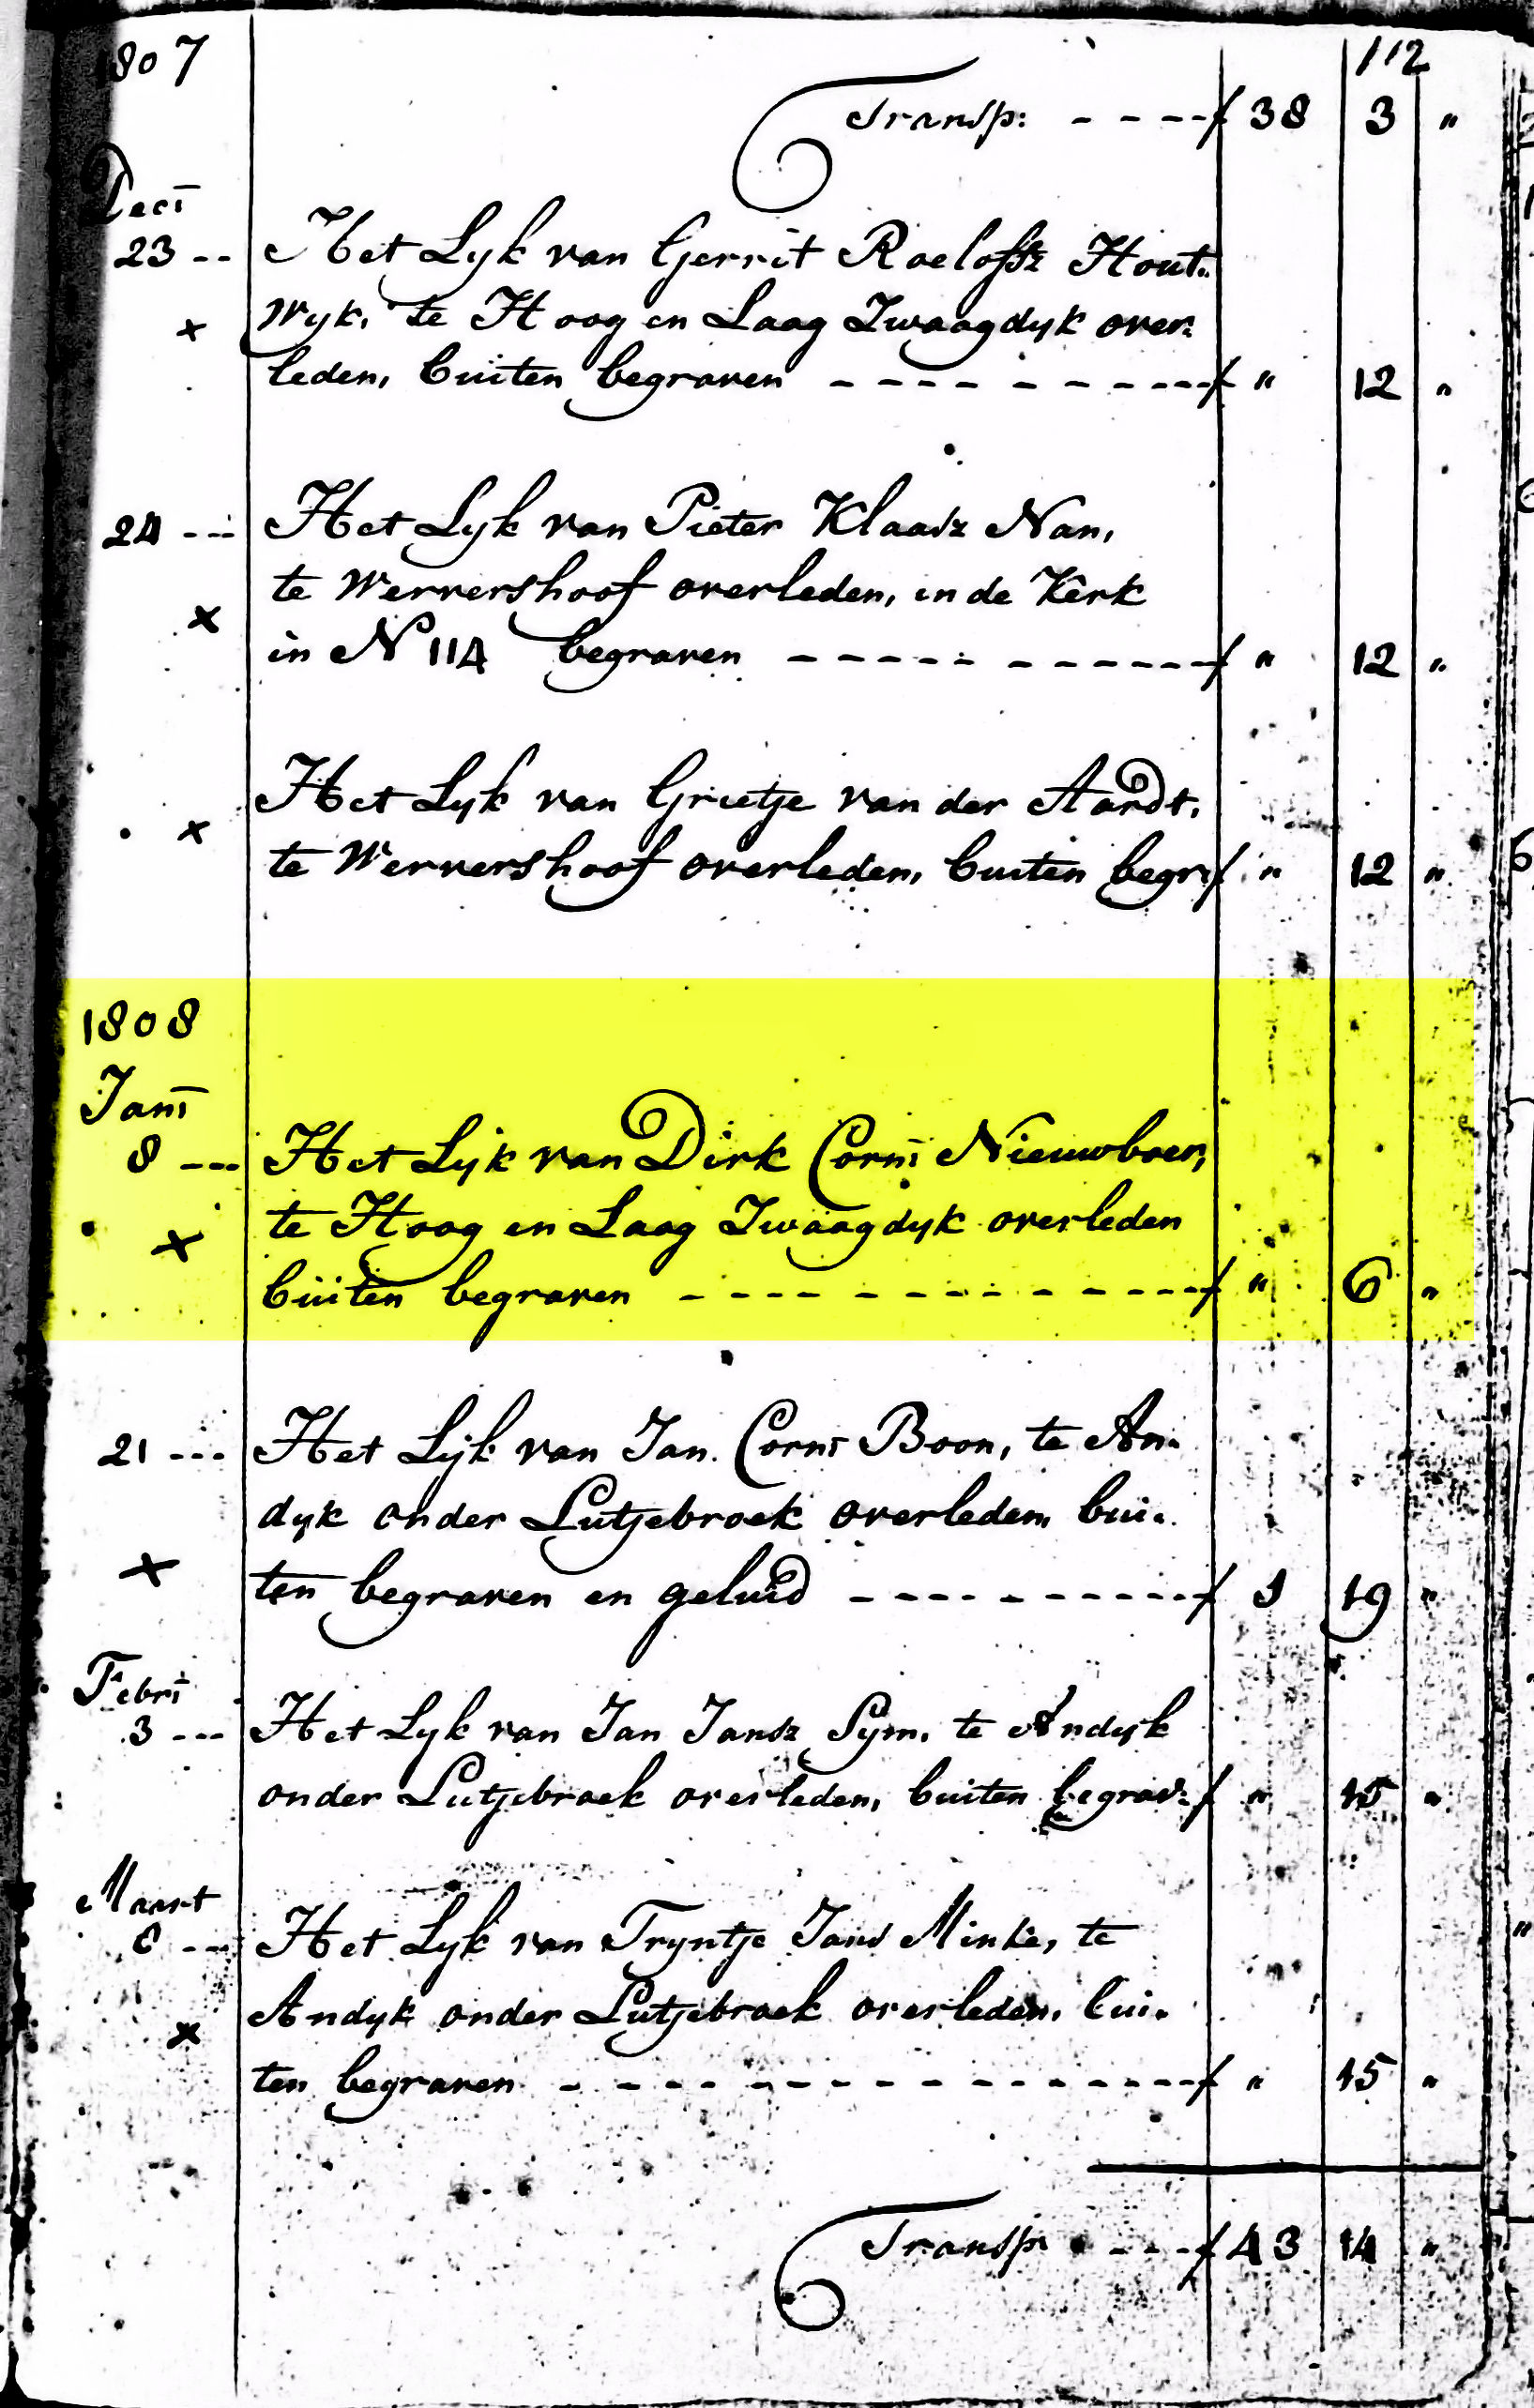 1807 112
Transp: - - - - f 38 3 "
Decr
23 -- Het Lyk van Gerrit Roelofsz Hout-
wyk, te Hoog en Laag Zwaagdyk over-
x
leden, buiten begraven - - - - - - - - - f " 12 "
24 --- Het Lyk van Pieter Klaasz Nan,
te Wervershoof overleden, in de Kerk
x
in N 114 begraven - - - - - - - - - - f " 12 "
Het Lyk van Grietje van der Aardt,
x
te Wervershoof overleden, buiten begr: f " 12 "
1808
Janr
8 --- Het Lijk van Dirk Corns Nieuwboer,
te Hoog en Laag Zwaagdyk overleden
x
buiten begraven - - - - - - - - - - f " 6 "
21 --- Het Lijk van Jan Corns Boon, te An-
dyk onder Lutjebroek overleden, bui-
x
ten begraven en geluid - - - - - - - - f 1 19 "
Febr
3 --- Het Lyk van Jan Jansz Sym, te Andyk
onder Lutjebroek overleden, buiten begrav: f " 15 "
Maart
Het Lyk van Tryntje Jans Minke, te
Andyk onder Lutjebroek overleden, bui-
x
ten begraven - - - - - - - - - - - - f " 15 "
Transp: - - - f 43 14 "